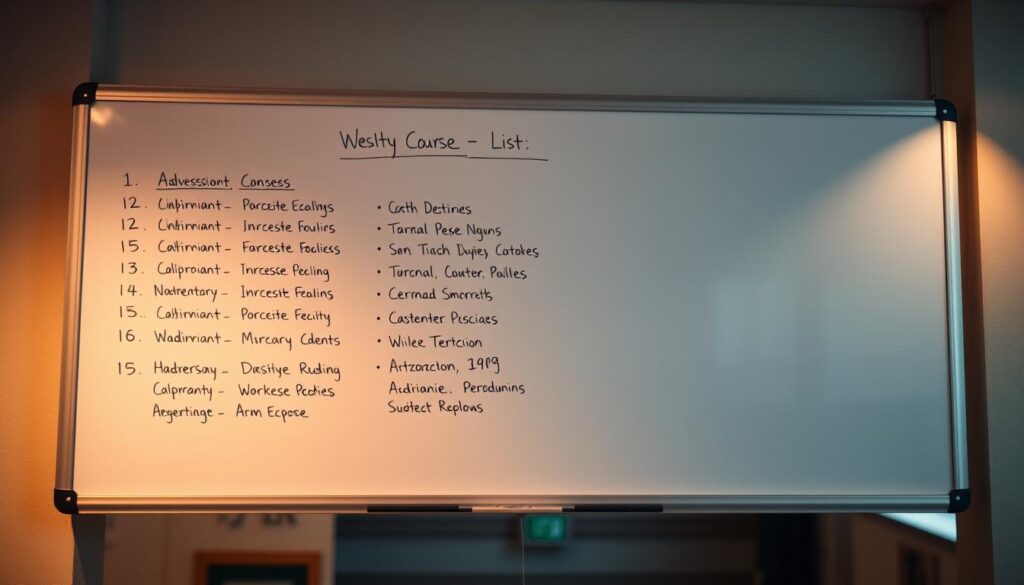 Weslty Course - List:
1. Advessiont Conses
12. Cinfimiant - Porceite Ecallngs
12. Cintimiant - Inrceste Foulirs
15. Catlimiant - Farceste Focliess
13. Caliproiant - Inrcese Pecling
14. Nadrentary - Incresit Fealins
15. Catlimiant - Porceite Fecilty
16. Wadimiant - Mircary Cdents
15. Hadrersay - Dastlye Ruding
Calpranty - Workese Pedies
Aegertinge - Arm Ecpose
• Cath Destines
• Tarnal Pese Nguns
• Son Tiach Dujey Cotokes
• Turcnal, Couter. Palles
• Cermad Smcrretts
• Castenter Pisciaes
• Wilee Tertcion
• Artzarcton, 19P9
Audrianie., Perodunins
Sudtect Replows